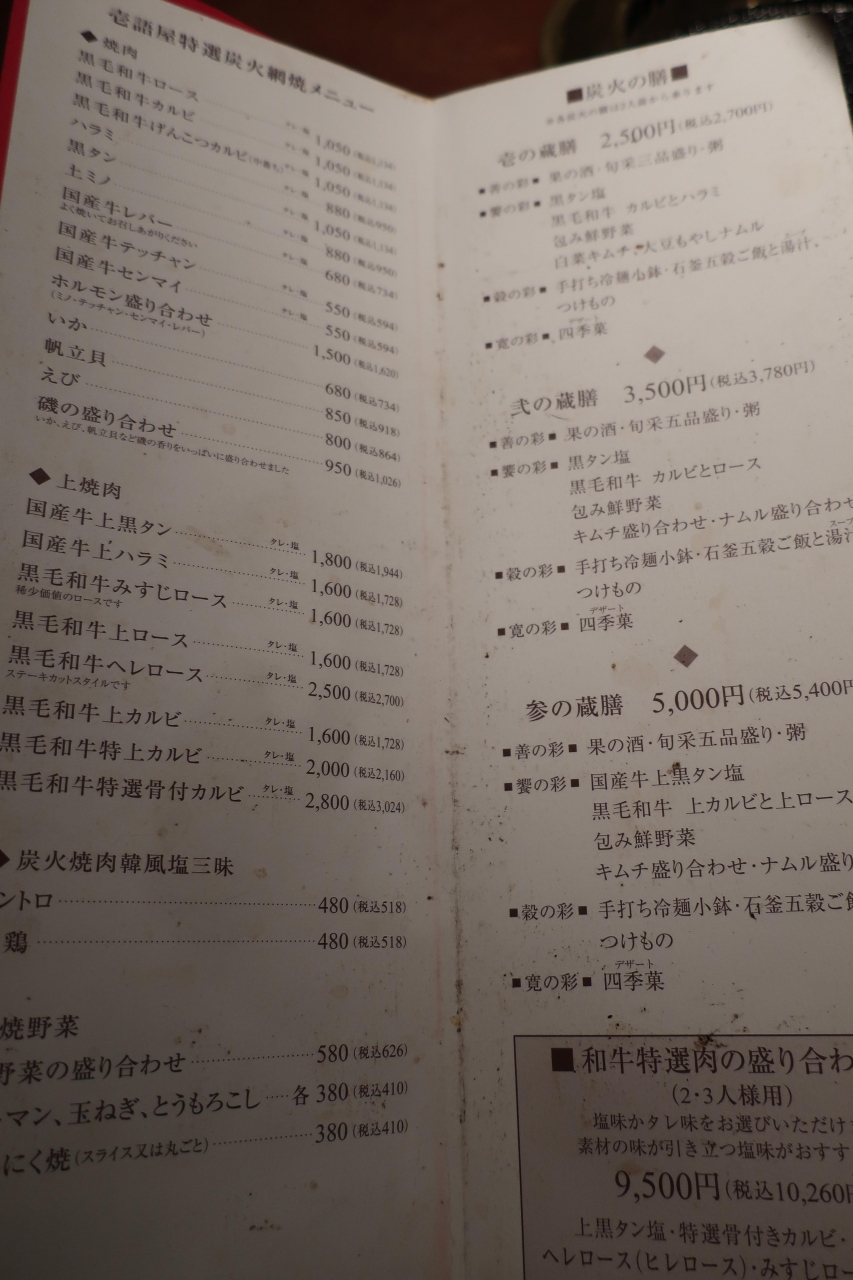 壱語屋特選炭火網焼メニュー
◆焼肉
黒毛和牛ロース タレ・塩 1,050(税込1,134)
黒毛和牛カルビ タレ・塩 1,050(税込1,134)
黒毛和牛げんこつカルビ タレ・塩 1,050(税込1,134)
ハラミ タレ・塩 880(税込950)
黒タン タレ・塩 1,050(税込1,134)
上ミノ タレ・塩 880(税込950)
国産牛レバー タレ・塩 680(税込734)
よく焼いてお召しあがりください
国産牛テッチャン タレ・塩 550(税込594)
国産牛センマイ タレ・塩 550(税込594)
ホルモン盛り合わせ 1,500(税込1,620)
(ミノ・テッチャン・センマイ・レバー)
いか 680(税込734)
帆立貝 850(税込918)
えび 800(税込864)
磯の盛り合わせ 950(税込1,026)
いか、えび、帆立貝など磯の香りをいっぱいに盛り合わせました
◆上焼肉
国産牛上黒タン タレ・塩 1,800(税込1,944)
国産牛上ハラミ タレ・塩 1,600(税込1,728)
黒毛和牛みすじロース タレ・塩 1,600(税込1,728)
稀少価値のロースです
黒毛和牛上ロース タレ・塩 1,600(税込1,728)
黒毛和牛ヘレロース タレ・塩 2,500(税込2,700)
ステーキカットスタイルです
黒毛和牛上カルビ タレ・塩 1,600(税込1,728)
黒毛和牛特上カルビ タレ・塩 2,000(税込2,160)
黒毛和牛特選骨付カルビ タレ・塩 2,800(税込3,024)
◆炭火焼肉韓風塩三昧
ントロ 480(税込518)
鶏 480(税込518)
焼野菜
野菜の盛り合わせ 580(税込626)
マン、玉ねぎ、とうもろこし 各380(税込410)
にく焼(スライス又は丸ごと) 380(税込410)
■炭火の膳■
壱の蔵膳 2,500円(税込2,700円)
■善の彩■ 果の酒・旬采三品盛り・粥
■饗の彩■ 黒タン塩
黒毛和牛 カルビとハラミ
包み鮮野菜
白菜キムチ、大豆もやしナムル
■穀の彩■ 手打ち冷麺小鉢・石釜五穀ご飯と湯汁、
スープ
つけもの
■寛の彩■ 四季菓
デザート
◆
弐の蔵膳 3,500円(税込3,780円)
■善の彩■ 果の酒・旬采五品盛り・粥
■饗の彩■ 黒タン塩
黒毛和牛 カルビとロース
包み鮮野菜
キムチ盛り合わせ・ナムル盛り合わせ
■穀の彩■ 手打ち冷麺小鉢・石釜五穀ご飯と湯汁
スープ
つけもの
■寛の彩■ 四季菓
デザート
◆
参の蔵膳 5,000円(税込5,400円
■善の彩■ 果の酒・旬采五品盛り・粥
■饗の彩■ 国産牛上黒タン塩
黒毛和牛 上カルビと上ロース
包み鮮野菜
キムチ盛り合わせ・ナムル盛り
■穀の彩■ 手打ち冷麺小鉢・石釜五穀ご飯
つけもの
■寛の彩■ 四季菓
デザート
■和牛特選肉の盛り合わ
(2・3人様用)
塩味かタレ味をお選びいただけ
素材の味が引き立つ塩味がおすす
9,500円(税込10,260円
上黒タン塩・特選骨付きカルビ・
ヘレロース(ヒレロース)・みすじロー